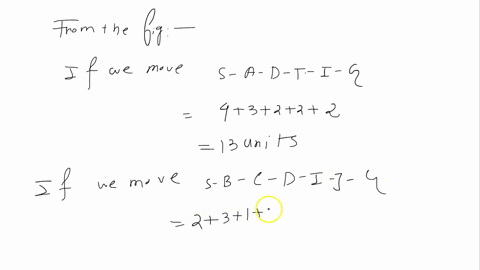 From the fig:—
If we move S-A-D-T-I-G
= 4+3+2+2+2
= 13 units
If we move S-B-C-D-I-J-G
= 2+3+1+